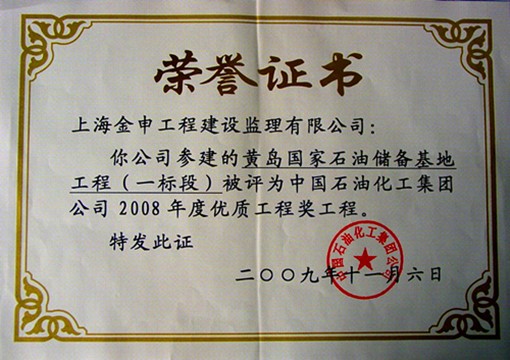 荣誉证书
上海金申工程建设监理有限公司：
你公司参建的黄岛国家石油储备基地
工程（一标段）被评为中国石油化工集团
公司2008年度优质工程奖工程。
特发此证
中国石油化工集团公司
二〇〇九年十一月六日